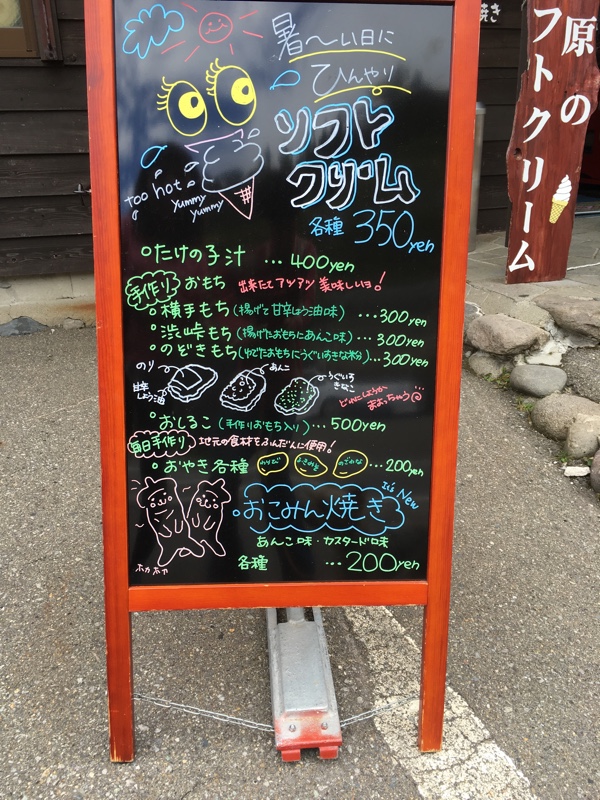 暑〜い日に
ひんやり
ソフト
クリーム
too hot
yummy
yummy
各種 350yen
°たけの子汁 …400yen
手作り おもち 出来たてアツアツ美味しいヨ!
°横手もち(揚げて甘辛しょう油味) …300yen
°渋峠もち(揚げたおもちにあんこ味) …300yen
°のぞきもち(ゆでたおもちにうぐいすきな粉)…300yen
のり
甘辛
しょう油
あんこ
うぐいす
きなこ
どれにしようか
まよっちゃう
°おしるこ(手作りおもち入り)…500yen
毎日手作り 地元の食材をふんだんに使用!
°おやき各種 のざわな …200yen
It's New
°おこみん焼き
あんこ味・カスタード味
各種 …200yen
ホカホカ
焼き
原の
フトクリーム